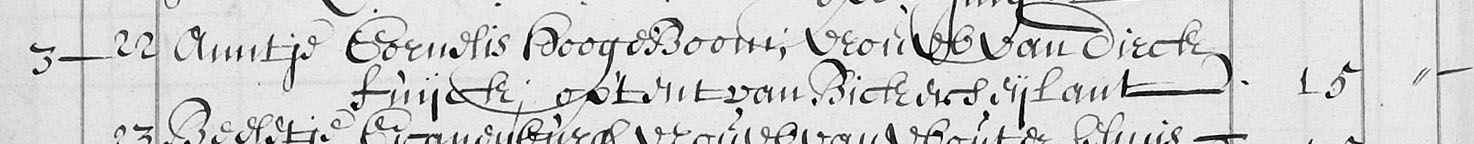 3 — 22 Anntje Cornelis HoogeBoom, vrouw van Dirck
fuijck, op't ent van Bickerseijlant — . 15 " —
23 vrouw van Wouter